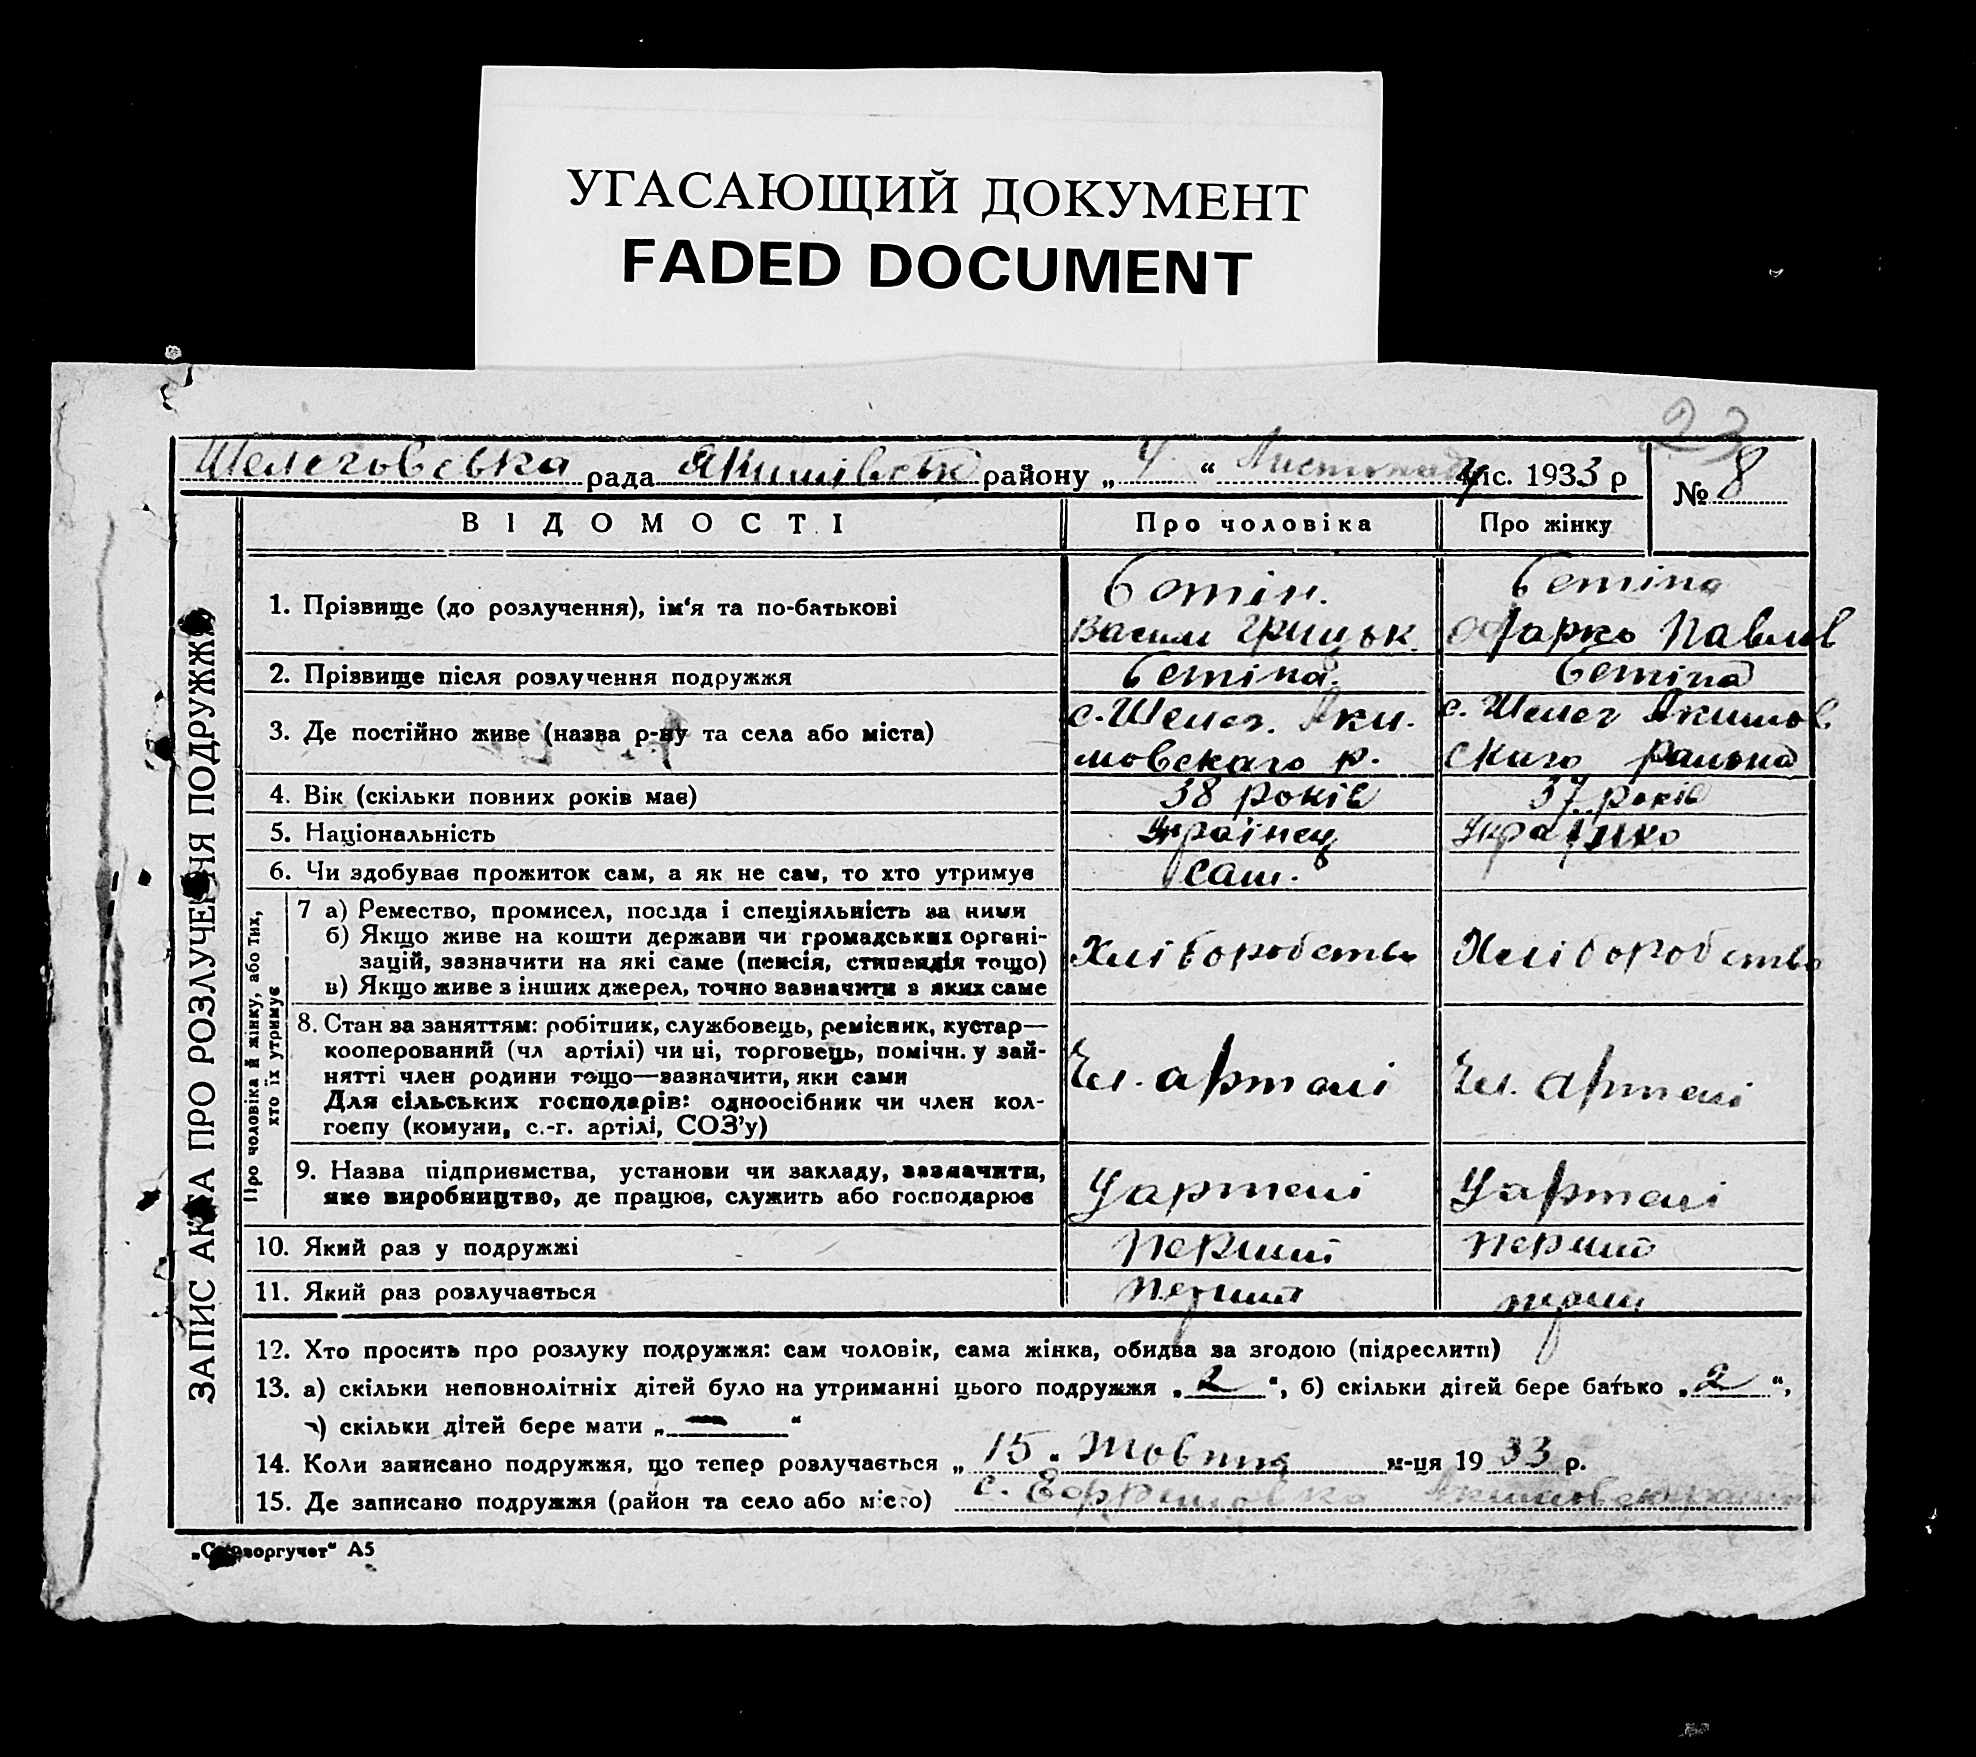 УГАСАЮЩИЙ ДОКУМЕНТ
FADED DOCUMENT
23
Шелеговська рада Якимівськ району „ 4 “ Листопад міс. 1933 р
№ 8
ЗАПИС АКТА ПРО РОЗЛУЧЕННЯ ПОДРУЖЖЯ
ВІДОМОСТІ Про чоловіка Про жінку
1. Прізвище (до розлучення), ім‘я та по-батькові
Василь Грицьк.
Павлів
2. Прізвище після розлучення подружжя
3. Де постійно живе (назва р-ну та села або міста)
с. Шелег. Аки-
мовскаго р.
с. Шелег Акимов
скаго района
4. Вік (скільки повних років має) 38 років 37 років
5. Національність Українец Українко
6. Чи здобував прожиток сам, а як не сам, то хто утримує сам.
Про чоловіка й жінку, або тих,
хто їх утримує
7 а) Ремество, промисел, посада і спеціяльність за ними
б) Якщо живе на кошти держави чи громадських органі-
зацій, зазначити на які саме (пенсія, стипендія тощо)
в) Якщо живе з інших джерел, точно зазначити з яких саме
Хліборобство Хліборобство
8. Стан за заняттям: робітник, службовець, ремісник, кустар—
кооперований (чл артілі) чи ні, торговець, помічн. у зай-
нятті член родини тощо—зазначити, яки сами
Для сільських господарів: одноосібник чи член кол-
госпу (комуни, с.-г. артілі, СОЗ’у)
Чл. артелі Чл. артелі
9. Назва підприємства, установи чи закладу, зазначити,
яке виробництво, де працює, служить або господарює
Уартелі Уартелі
10. Який раз у подружжі Перший перший
11. Який раз розлучається перший
12. Хто просить про розлуку подружжя: сам чоловік, сама жінка, обидва за згодою (підреслити)
13. а) скільки неповнолітніх дітей було на утриманні цього подружжя „ 2 “, б) скільки дітей бере батько „ 2 “,
в) скільки дітей бере мати „ — “
14. Коли записано подружжя, що тепер розлучається „ 15 “ Товтня м-ця 1933 р.
15. Де записано подружжя (район та село або місто) с.
А5